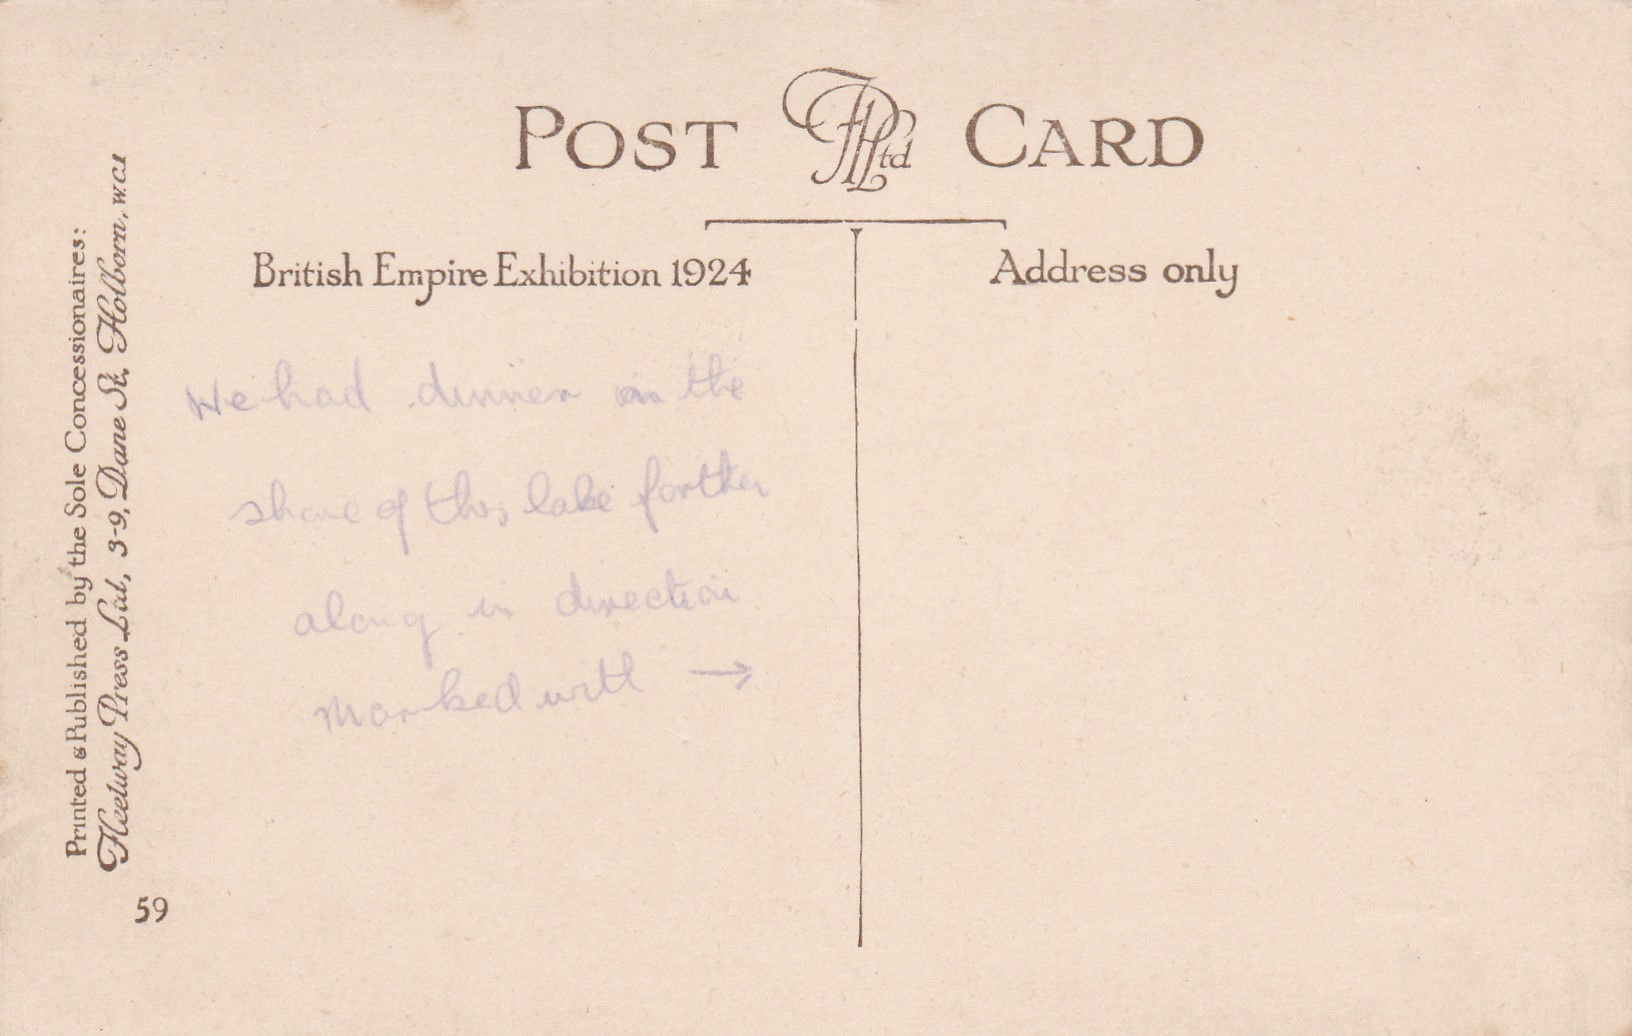 POST FPLtd CARD
British Empire Exhibition 1924
Address only
We had dinner on the
shore of this lake further
along in direction
marked with →
Printed & Published by the Sole Concessionaires:
Fleetway Press Ltd, 3-9, Dane St. Holborn, W.C.1
59